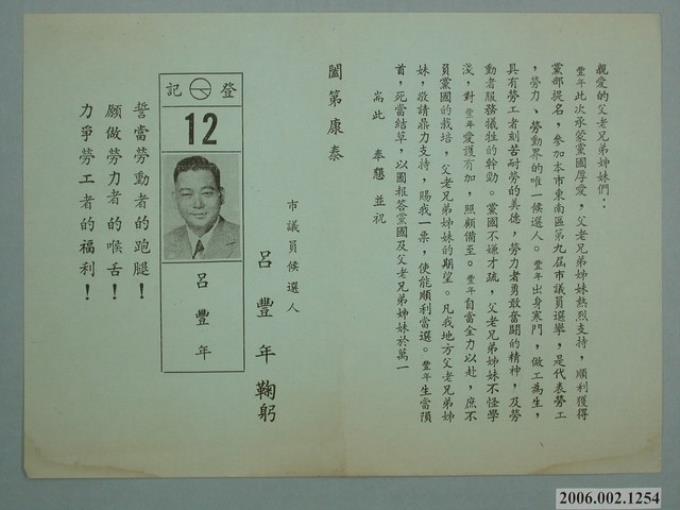 親愛的父老兄弟姊妹們：
豐年此次承蒙黨國厚愛，父老兄弟姊妹熱烈支持，順利獲得
黨部提名，參加本市東南區第九屆市議員選舉，是代表勞工
，勞力、勞動界的唯一候選人。豐年出身寒門，做工為生，
具有勞工者刻苦耐勞的美德，勞力者勇敢奮鬪的精神，及勞
動者服務犧牲的幹勁。黨國不嫌才疏，父老兄弟姊妹不怪學
淺，對豐年愛護有加，照顧備至。豐年自當全力以赴，庶不
員黨國的栽培，父老兄弟姊妹的期望。凡我地方父老兄弟姊
妹，敬請鼎力支持，賜我一票，使能順利當選。豐年生當隕
首，死當結草，以圖報答黨國及父老兄弟姊妹於萬一
耑此　奉懇　並祝
闔第康泰
市議員候選人
呂豐年鞠躬
登記
12
呂豐年
誓當勞動者的跑腿！
願做勞力者的喉舌！
力爭勞工者的福利！
2006.002.1254